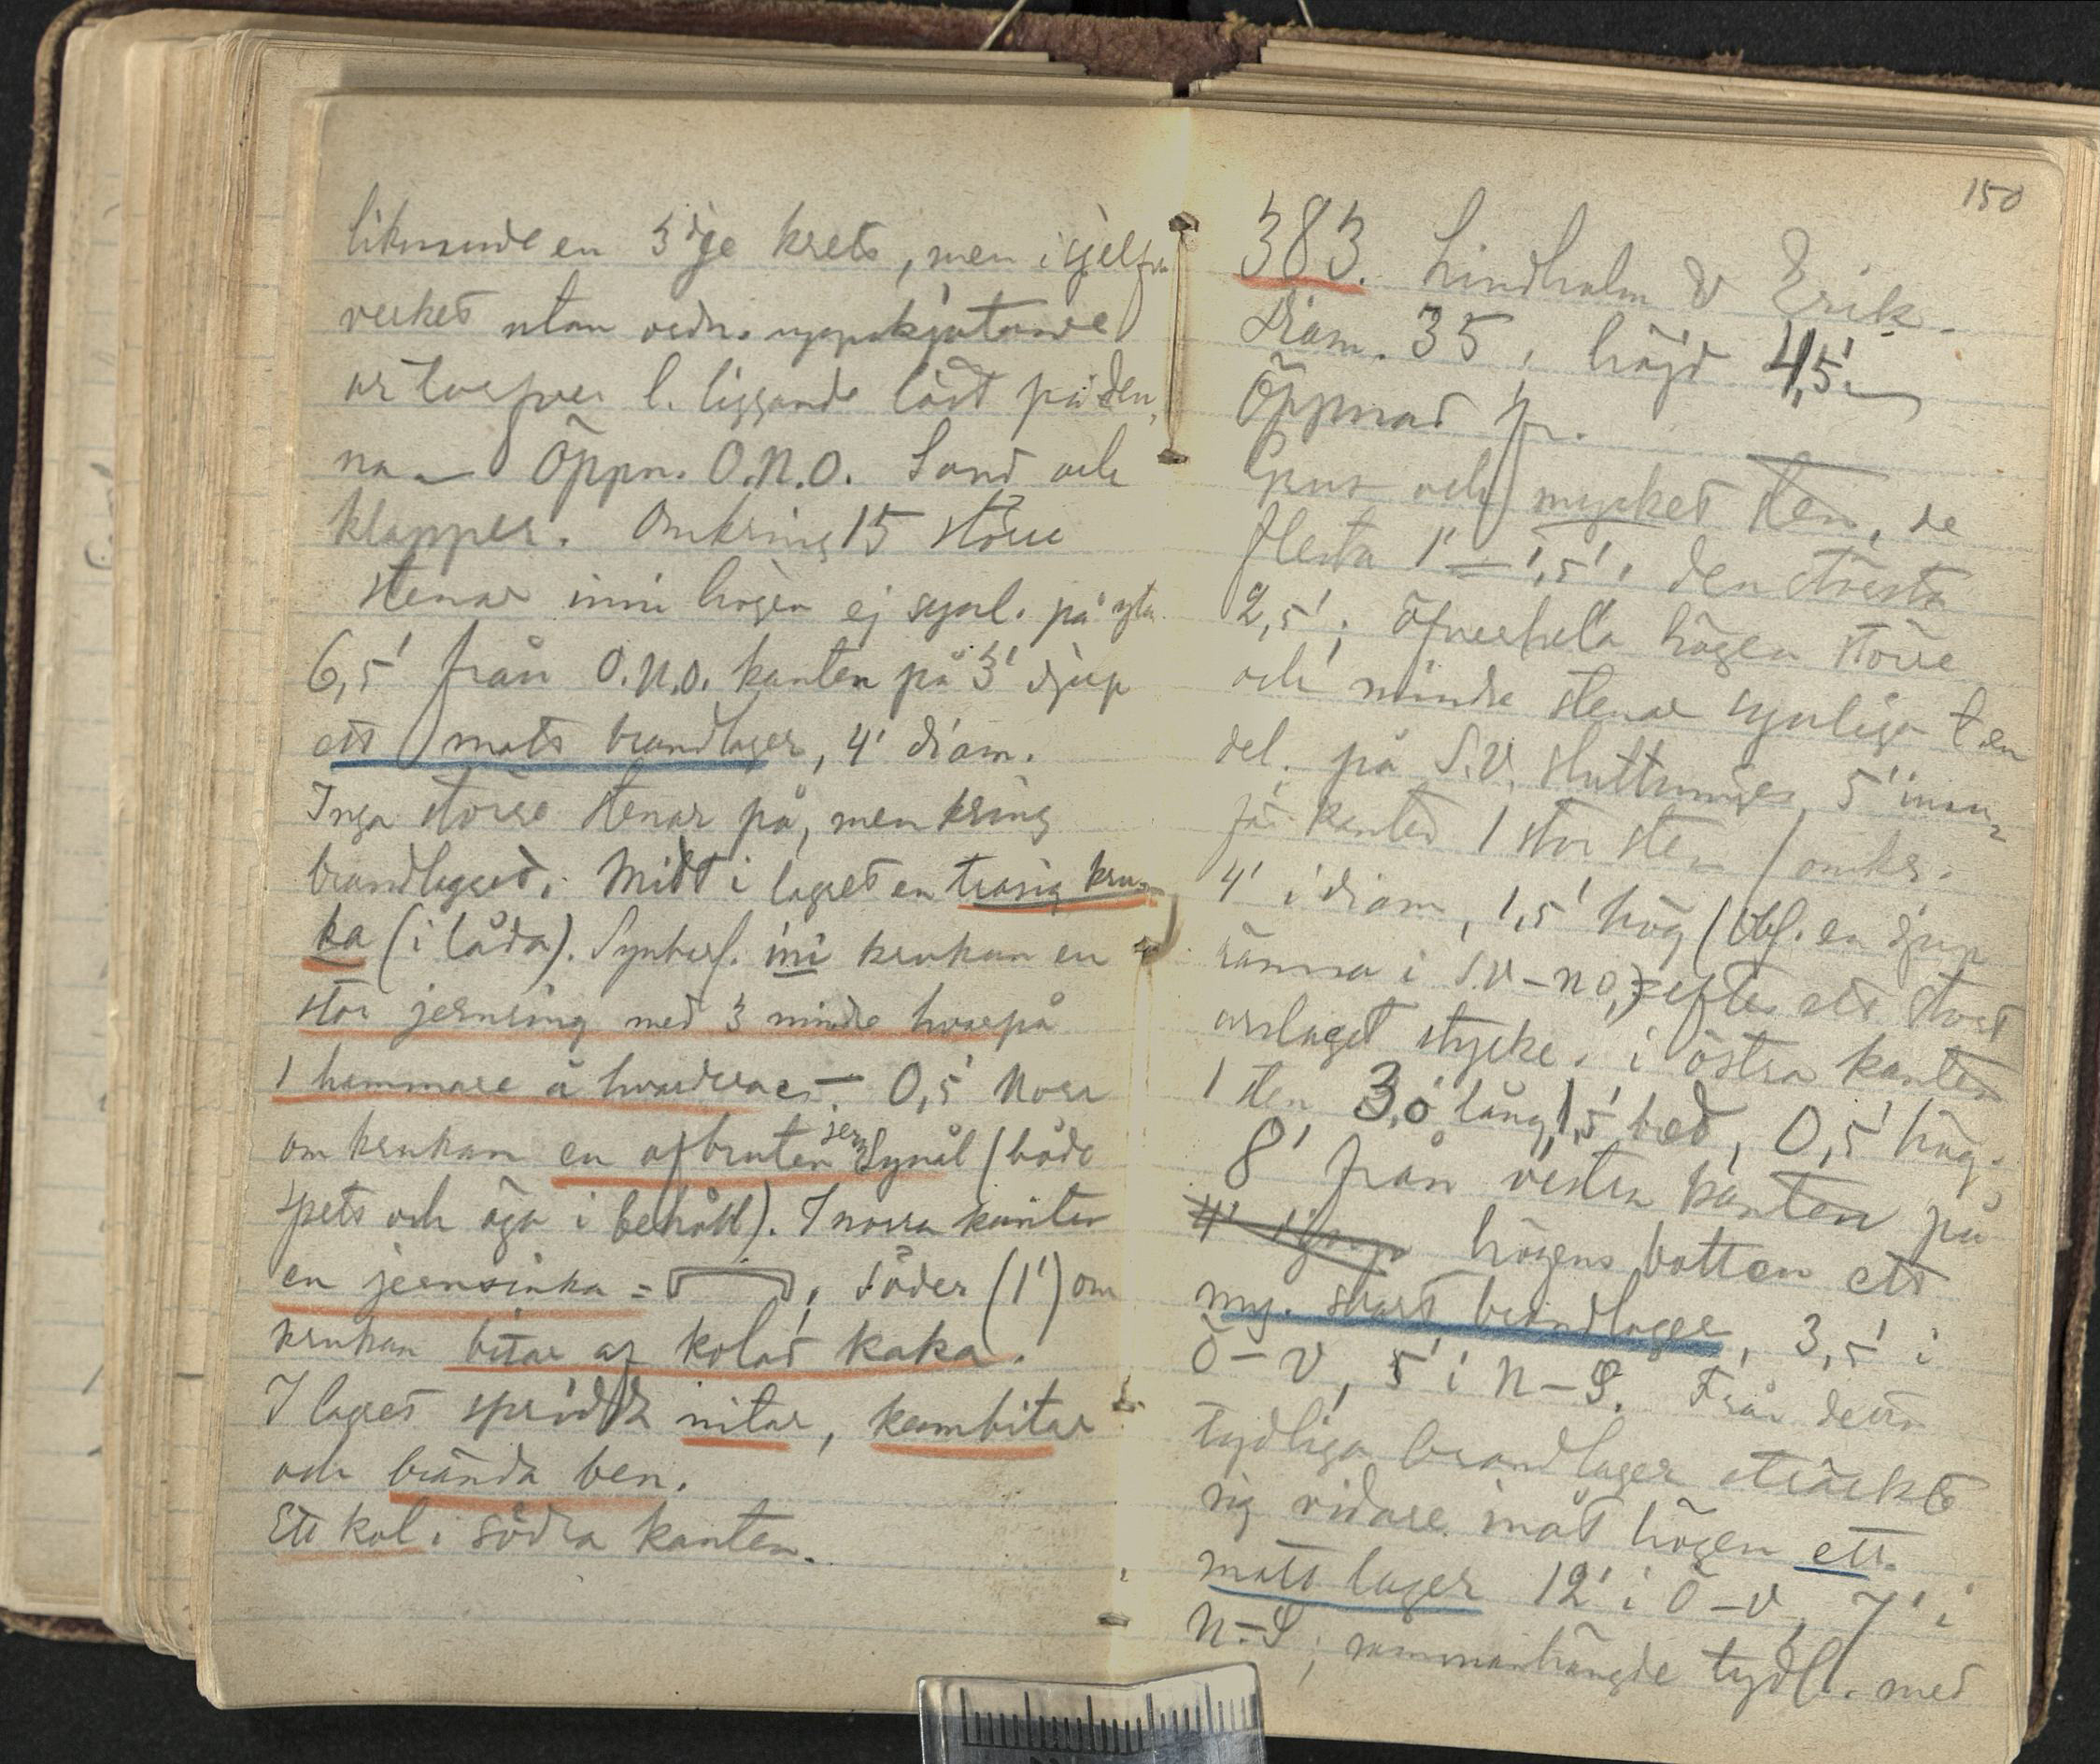 liknande en 3dje krets, men i sjelfva
verket utan ordn. uppskjutande
ur torfven l. liggande löst på den-
na — Öppn. O.N.O. Sand och
klapper. Omkring 15 större
stenar inni högen ej synl. på ytan
6,5' från O.N.O. kanten på 3' djup
ett matt brandlager, 4' diam.
Inga större stenar på, men kring
brandlagret. Midt i lagret en trasig kru-
ka (i låda). Synbarl. ini krukan en
stor jernring med 3 mindre hvarpå
1 hammare å hvardera — 0,5' Norr
om krukan en afbruten jern synål (både
spets och öga i behåll). I norra kanten
en jernsinka = , söder (1') om
krukan bitar af kolad kaka.
I lagret spridda nitar, kambitar
och brända ben.
Ett kol i södra kanten.
150
383. Lindholm & Erik.
Diam. 35, höjd 4,5' —
Öppnad fr.
Grus och mycket sten, de
flesta 1' — 1,5', den största
2,5'; öfver hela högen större
och mindre stenar synliga t en
del. på S.V. sluttningen, 5' inan-
för kanten 1 stor sten (omkr.
4' i diam, 1,5' hög (Obs. en djup
ränna i S.V–NO,) efter ett stort
urslaget stycke. i östra kanten
1 sten 3,0' lång, 1,5' bred, 0,5' hög.
8' från vestra kanten på
4' djup högens botten ett
my. svart brandlager, 3,5' i
Ö–V, 5' i N–S. Från detta
tydliga brandlager sträckte
sig vidare inåt högen ett
matt lager 12' i Ö–V, 7' i
N–S; sammanhängde tydl. med